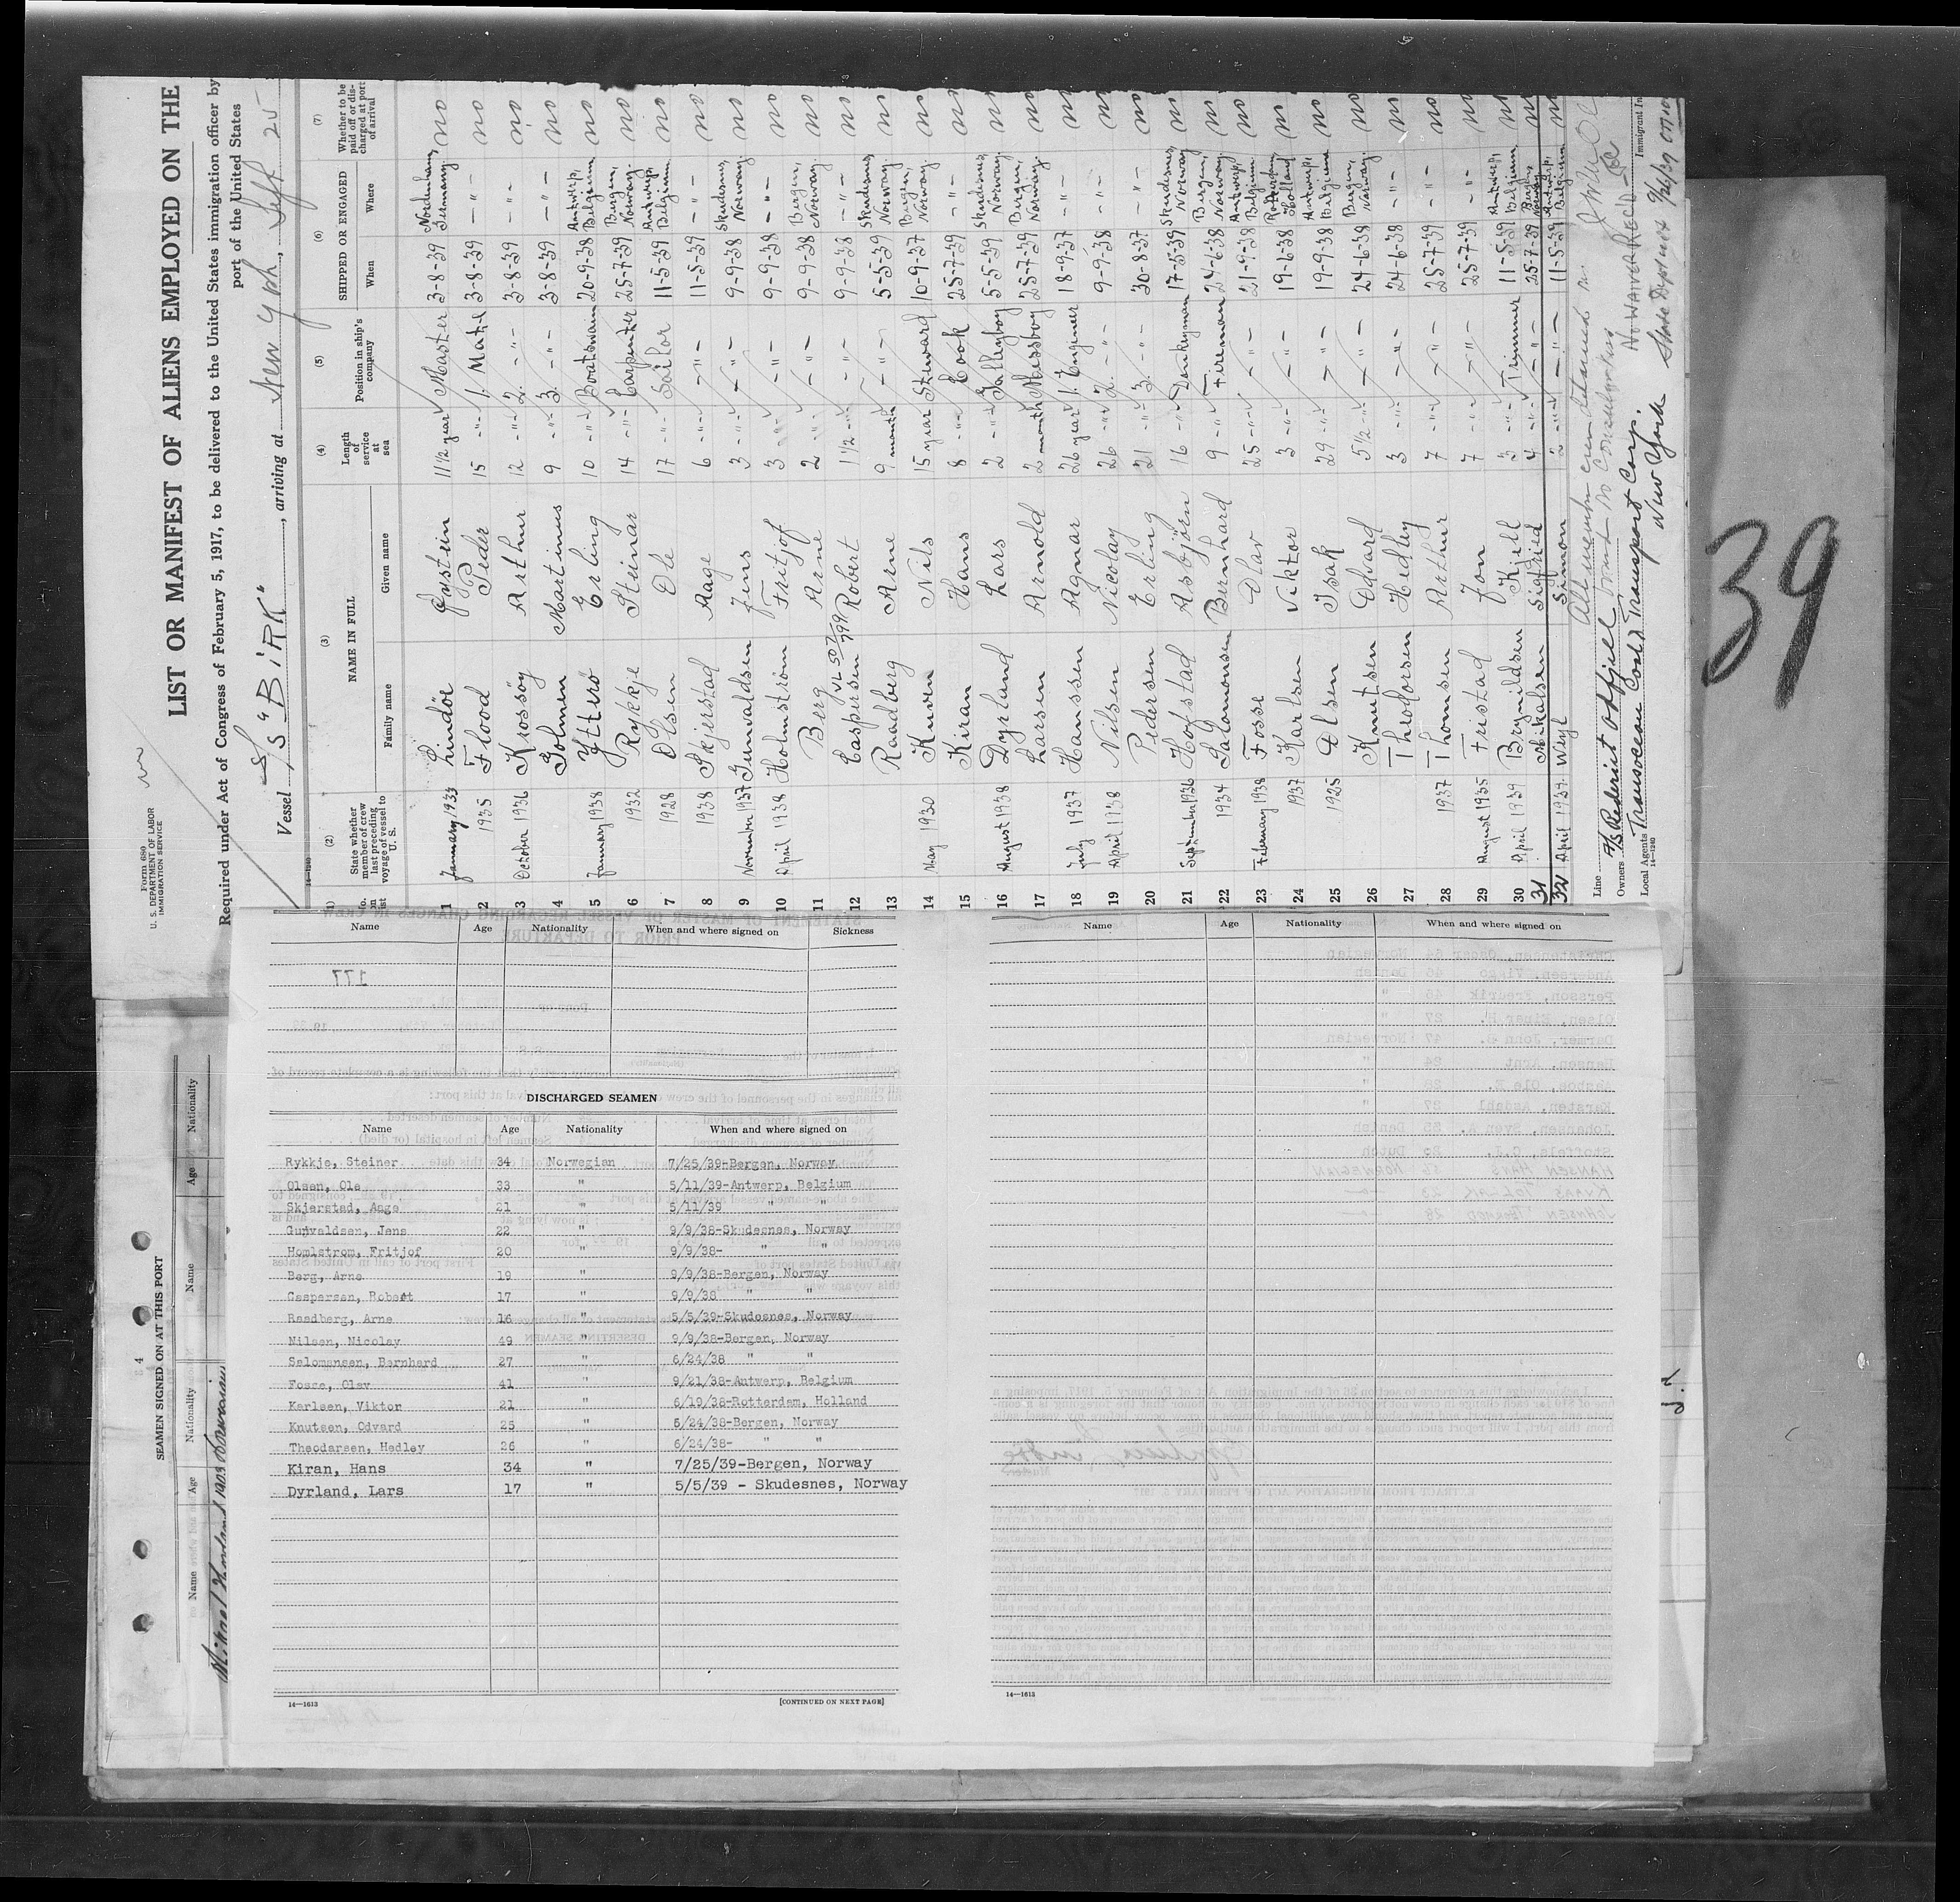 Form 680
U. S. DEPARTMENT OF LABOR
IMMIGRATION SERVICE
LIST OR MANIFEST OF ALIENS EMPLOYED ON THE
Required under Act of Congress of February 5, 1917, to be delivered to the United States immigration officer by
port of the United States
Vessel S/S "BIRK", arriving at New York, Sept 25
14-1240
(1) (2) (3) (4) (5) (6) (7)
State whether member of crew last preceding voyage of vessel to U. S.
NAME IN FULL
Family name Given name
Length of service at sea
Position in ship's company
SHIPPED OR ENGAGED
When Where
Whether to be paid off or discharged at port of arrival
1 January 1933 Lindöe Øystein 11½ year Master 3-8-39 Nordenham, Germany. no
2 1935 Flood Peder 15 -"- 1. Mate 3-8-39 -"- no
3 October 1936 Krossøy Arthur 12 -"- 2. -"- 3-8-39 -"- no
4 Golmen Martinus 9 -"- 3. -"- 3-8-39 -"- no
5 January 1938 Ytterø Erling 10 -"- Boatswain 20-9-38 Antwerp, Belgium no
6 1932 Rykkje Steinar 14 -"- Carpenter 25-7-39 Bergen, Norway. no
7 1928 Olsen Ole 17 -"- Sailor 11-5-39 Antwerp, Belgium no
8 1938 Skjerstad Aage 6 -"- -"- 11-5-39 -"- no
9 November 1937 Gunvaldsen Jens 3 -"- -"- 9-9-38 Skudesnes, Norway. no
10 April 1938 Holmstrøm Fritjof 3 -"- -"- 9-9-38 -"- no
11 Berg Arne 2 -"- -"- 9-9-38 Bergen, Norway. no
12 Caspersen Robert 1½ -"- -"- 9-9-38 -"- no
13 Raadberg Arne 9 month -"- 5-5-39 Skudesnes, Norway. no
14 May 1930 Knoven Nils 15 year Steward 10-9-37 Bergen, Norway. no
15 Kiran Hans 8 -"- Cook 25-7-39 -"- no
16 August 1938 Dyrland Lars 2 -"- Galleyboy 5-5-39 Skudesnes, Norway. no
17 Larsen Arnold 2 month Messboy 25-7-39 Bergen, Norway. no
18 July 1937 Hanssen Agnar 26 year 1. Engineer 18-9-37 -"- no
19 April 1938 Nilsen Nicolay 26 -"- 2. -"- 9-9-38 -"- no
20 Pedersen Erling 21 -"- 3. -"- 30-8-37 -"- no
21 September 1936 Hofstad Asbjørn 16 -"- Donkeyman 17-5-39 Skudesnes, Norway no
22 1934 Salomonsen Bernhard 9 -"- Fireman 24-6-38 Bergen, Norway. no
23 February 1938 Fosse Olav 25 -"- -"- 21-9-38 Antwerp, Belgium no
24 1937 Karlsen Viktor 3 -"- -"- 19-6-38 Rotterdam, Holland no
25 1928 Olsen Isak 29 -"- -"- 19-9-38 Antwerp, Belgium no
26 Knutsen Odvard 5½ -"- -"- 24-6-38 Bergen, Norway. no
27 Theodorsen Hedley 3 -"- -"- 24-6-38 -"- no
28 1937 Thomsen Arthur 7 -"- -"- 25-7-39 -"- no
29 August 1935 Fristad Jon 7 -"- -"- 25-7-39 -"- no
30 April 1939 Brynildsen Kjell 3 -"- Trimmer 11-5-39 Antwerp, Belgium no
31 Mikalsen Sigfried 4 -"- -"- 25-7-39 Bergen, Norway no
32 April 1939 Weyl Simon 2 -"- -"- 11-5-39 Antwerp, Belgium no
Line
Owners A/S Rederiet Odfjell
Local Agents Transocean Coal & Transport Corp. New York
14-1240
Immigrant In
39
Name Age Nationality When and where signed on Sickness
DISCHARGED SEAMEN
Name Age Nationality When and where signed on
Rykkje, Steiner 34 Norwegian 7/25/39-Bergen, Norway
Olsen, Ole 33 " 5/11/39-Antwerp, Belgium
Skjerstad, Aage 21 " 5/11/39 " "
Gunvaldsen, Jens 22 " 9/9/38-Skudesnes, Norway
Homlstrom, Fritjof 20 " 9/9/38- " "
Berg, Arne 19 " 9/9/38-Bergen, Norway
Caspersen, Robert 17 " 9/9/38 " "
Raadberg, Arne 16 " 5/5/39-Skudesnes, Norway
Nilsen, Nicolay 49 " 9/9/38-Bergen, Norway
Salomansen, Bernhard 27 " 6/24/38 " "
Fosse, Olav 41 " 9/21/38-Antwerp, Belgium
Karlsen, Viktor 21 " 6/19/38-Rotterdam, Holland
Knutsen, Odvard 25 " 6/24/38-Bergen, Norway
Theodarsen, Hedley 26 " 6/24/38- " "
Kiran, Hans 34 " 7/25/39-Bergen, Norway
Dyrland, Lars 17 " 5/5/39 - Skudesnes, Norway
14—1613 [CONTINUED ON NEXT PAGE]
Name Age Nationality When and where signed on
14—1613
SEAMEN SIGNED ON AT THIS PORT
Name Age Nationality Name Age Nationality